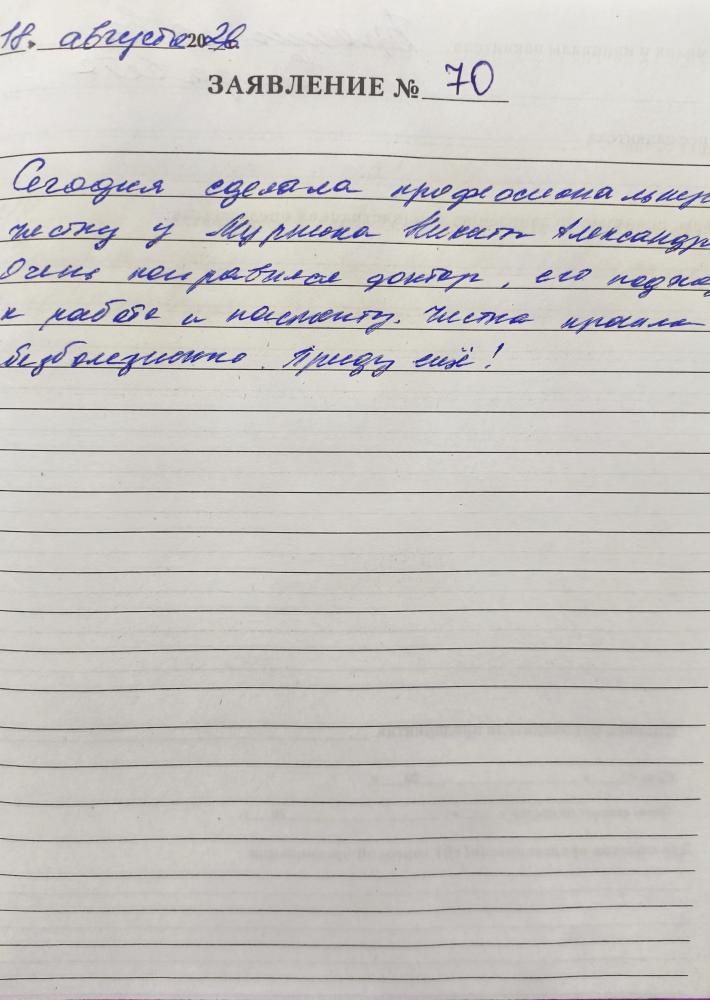 18. августа 2020
ЗАЯВЛЕНИЕ № 70
Сегодня сделала профессиональную
чистку у Никиты Александр
Очень понравился доктор, его подход
к работе и пациенту. Чистка прошла
безболезненно. Приду ещё!